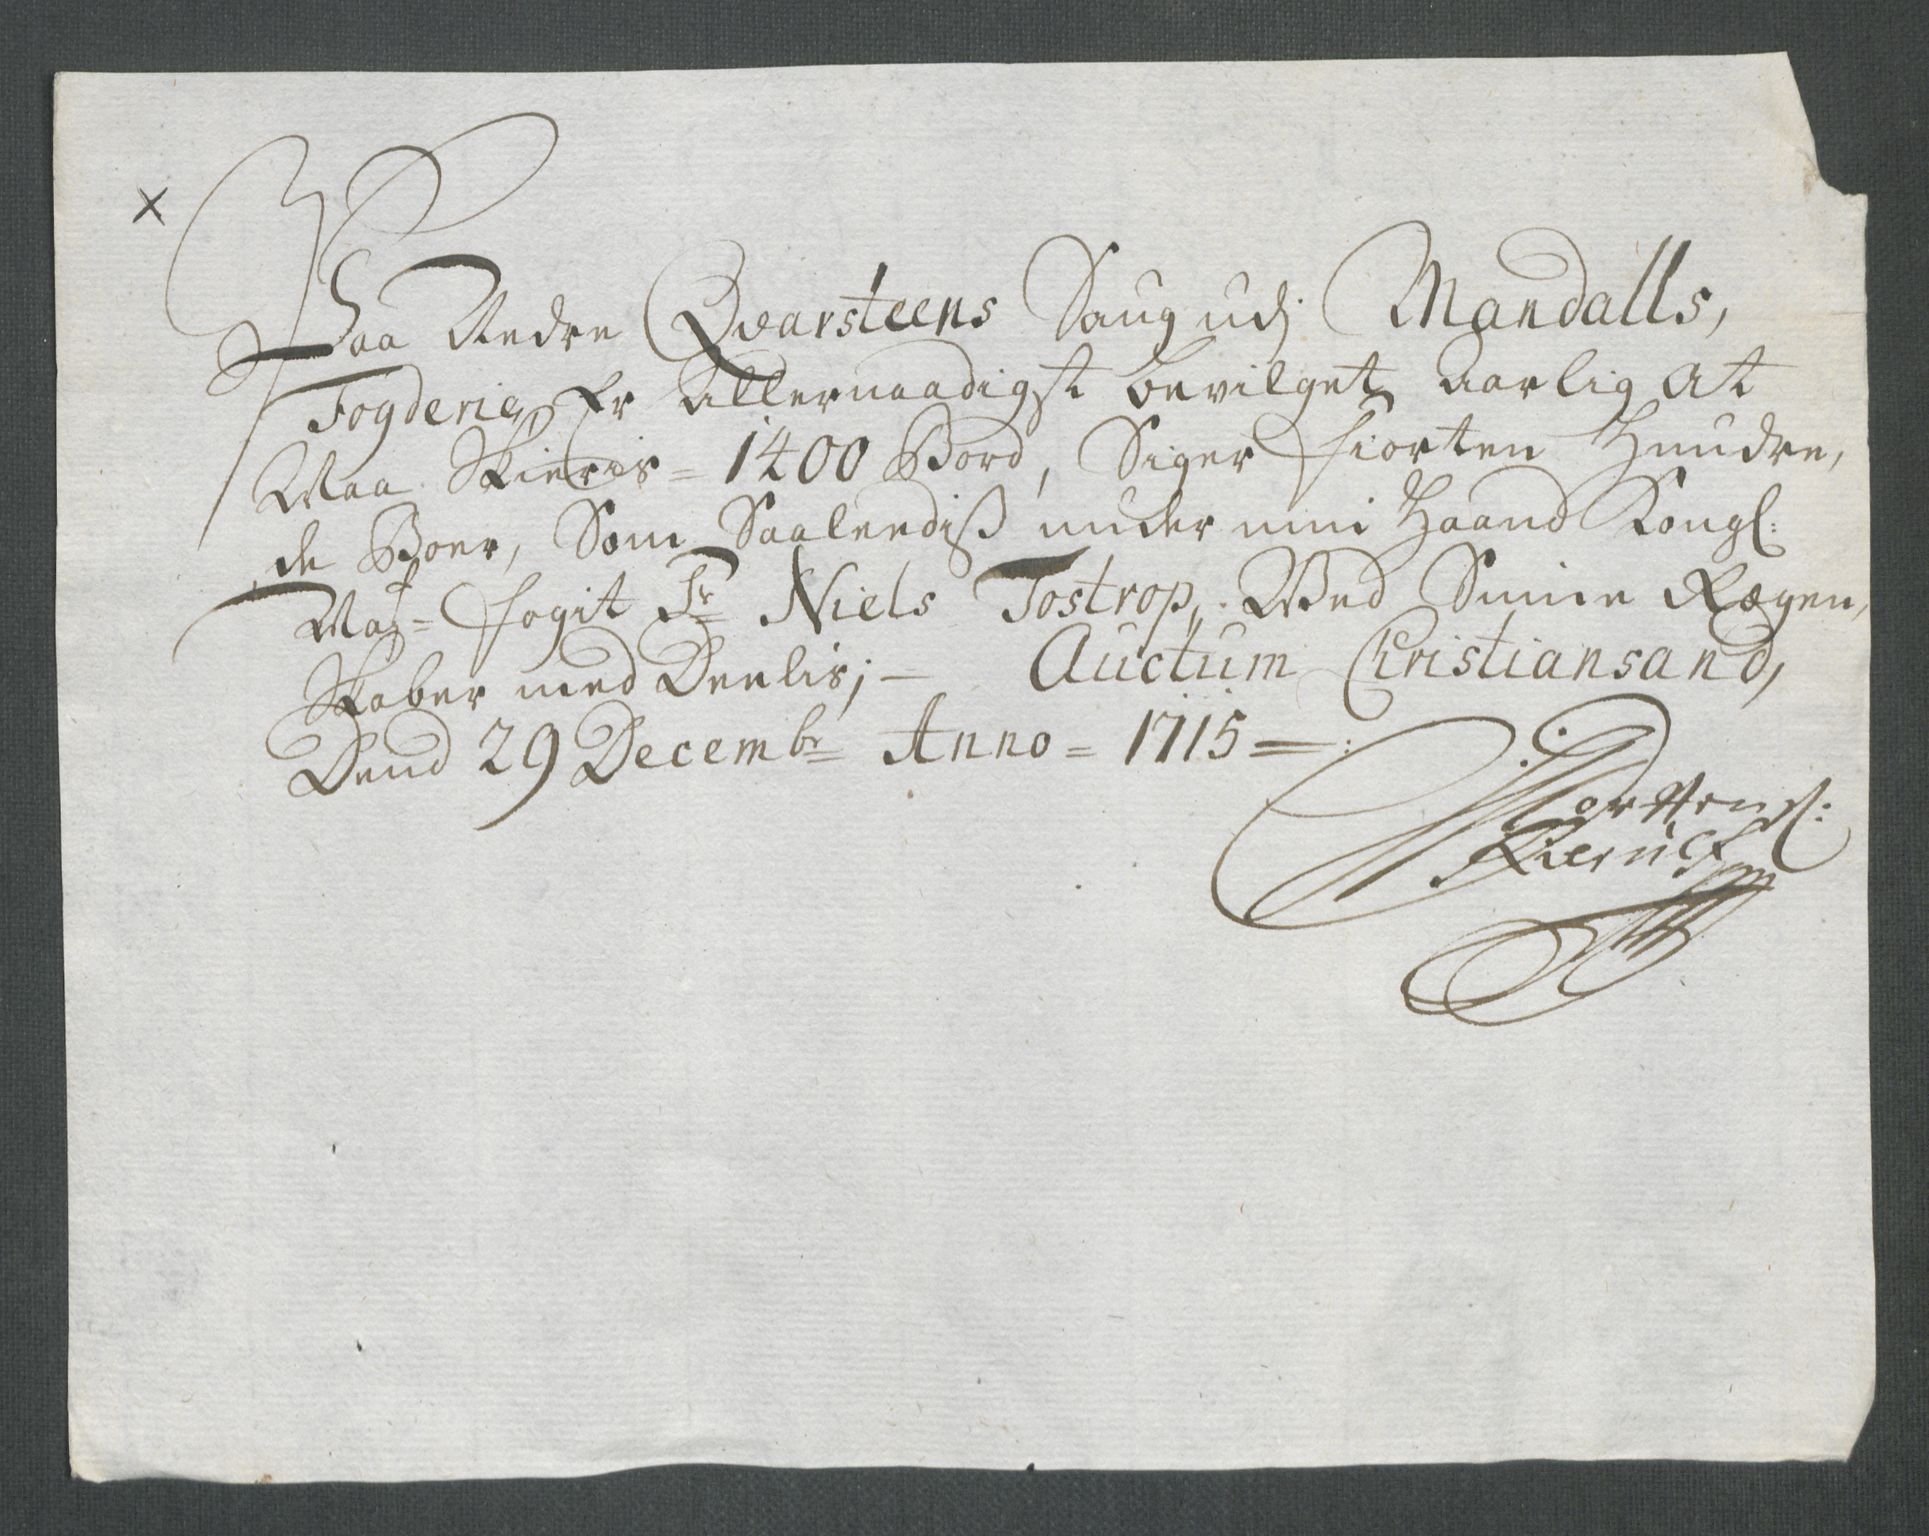 x
Paa Nedre Qvarsteens Saug udj Mandalls,
Fogderie, Er Allernaadigst bevilget Aarlig At
Maa Skieris = 1400 Bord, Siger fiorten Hundre,
de Boer, Som Saaleediß under min Haand Kongl:
Maj = fogit Sr Niels Tostrop, Ved Sinne Regen,
Skaber med Deelis; — Auctum Christiansand,
Dend 29 Decembr Anno = 1715 =
Mortten